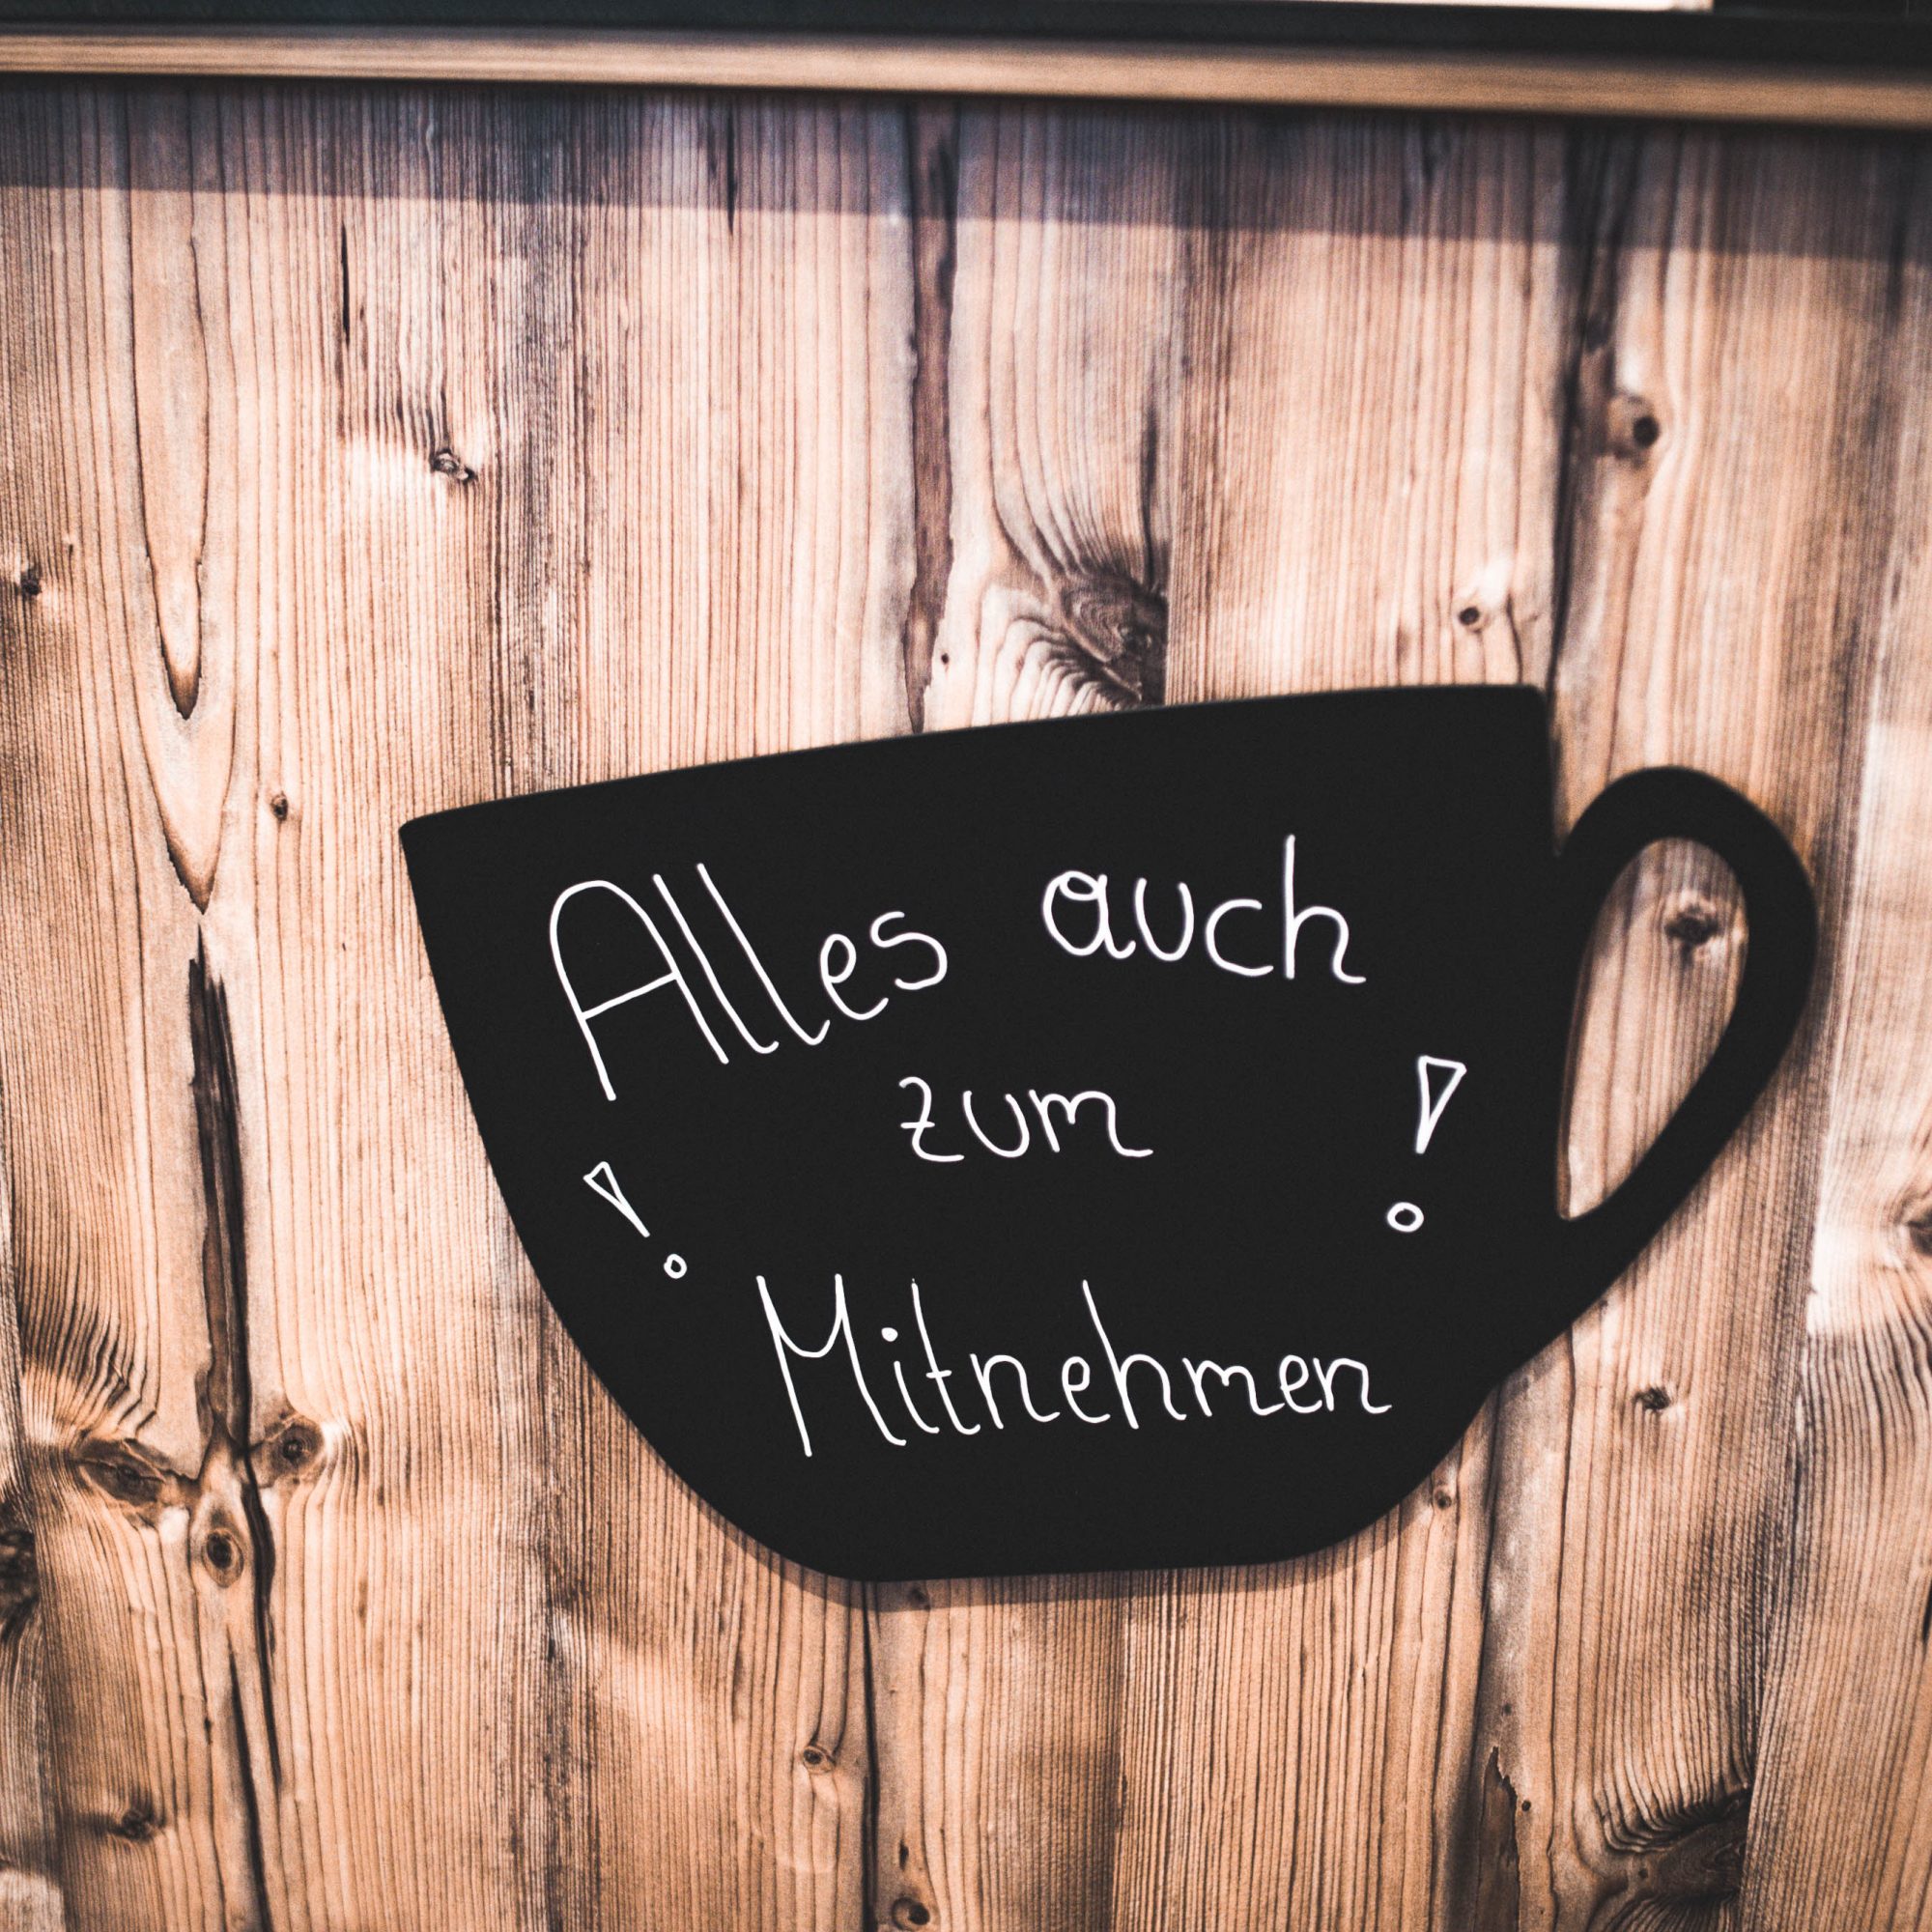 Alles auch
zum
! !
Mitnehmen